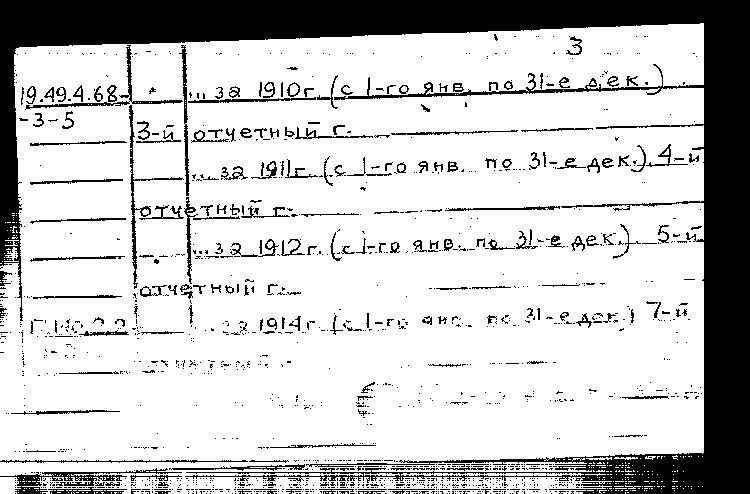 3
19.49.4.68- * ... за 1910г. (с 1-го янв. по 31-е дек.).
-3-5 3-й отчетный г.
... за 1911г. (с 1-го янв. по 31-е дек.). 4-й
отчетный г.
... за 1912г. (с 1-го янв. по 31-е дек.). 5-й
отчетный г.
... за 1914г. (с 1-го янв. по 31-е дек.) 7-й
отчетный г.